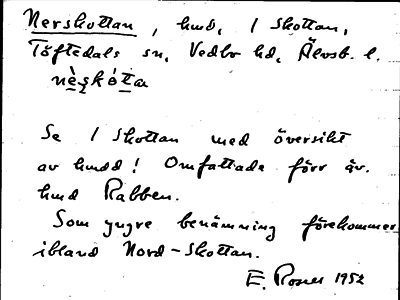 Nerskottan, hmd, / Skottan,
Töftedals sn, Vedbo hd, Älvsb. l.
nèskóta
Se / Skottan med översikt
av hmdd! Omfattade förr äv.
hmd Rabben.
Som yngre benämning förekommer
ibland Nord-Skottan.
E. Rosell 1952